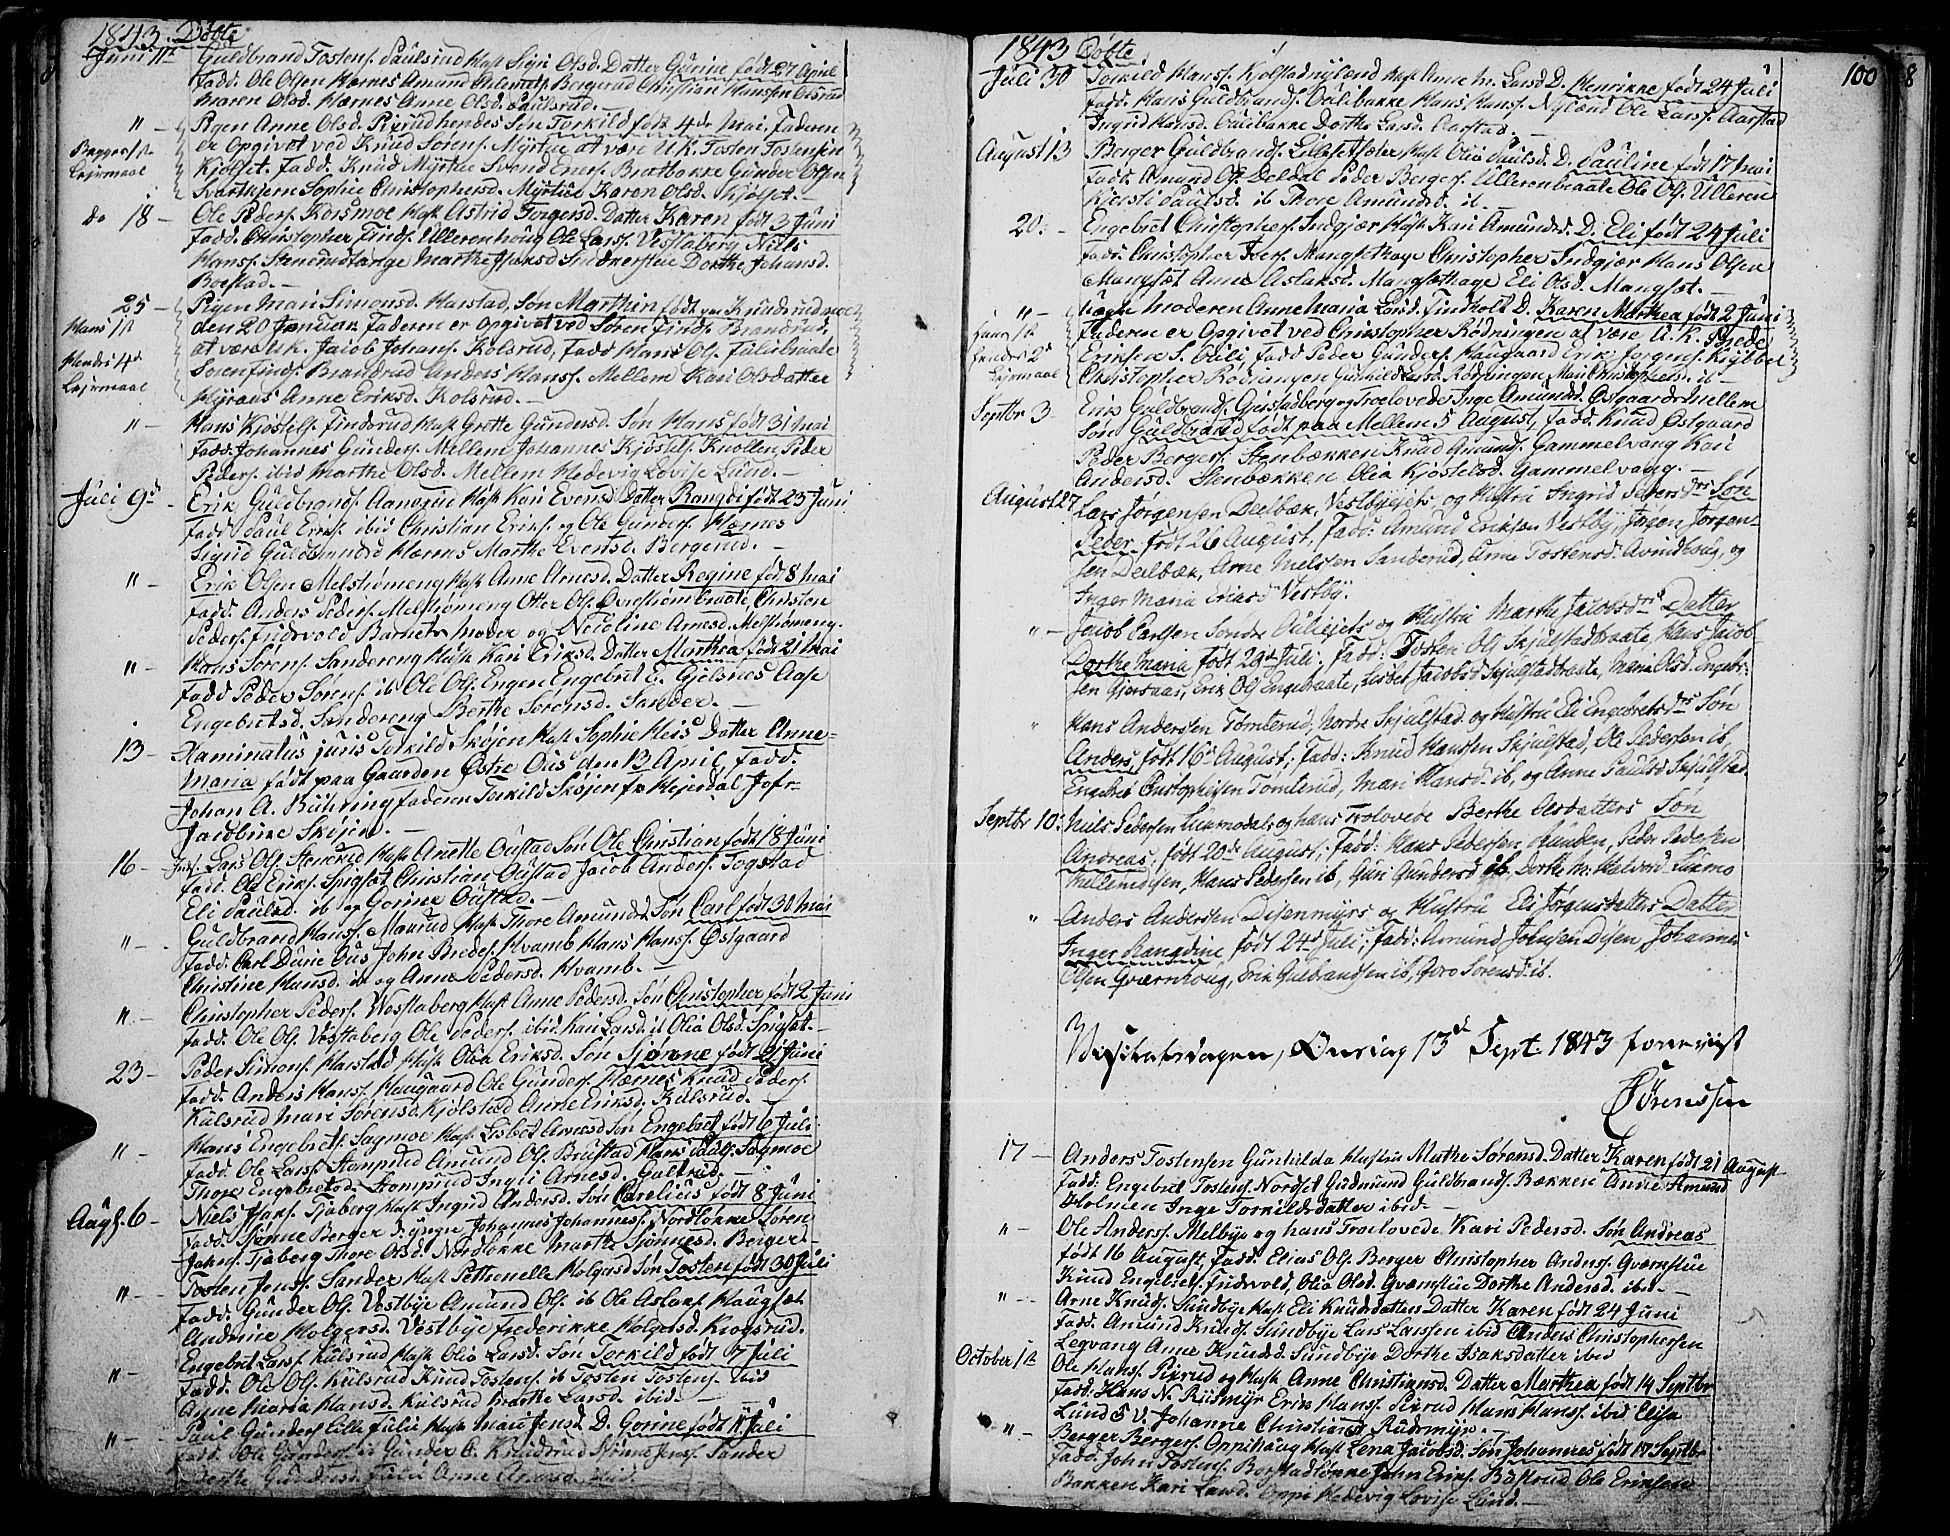 1843. Døbte
Juni 11te Guldbrand Tostens. Paulsrud Hust Sigri Olsd. Datter Gurine født 27 April
Fadd. Ole Olsen Hærnes Amund Bergerud Christian Hanssen Olsrud
Maren Olsd. Hærnes Anne Olsd. Paulsrud.
" - Pigen Anne Olsd. Pixrud hendes Søn Torkild født 4de Mai. Faderen
er Opgivet ved Knud Sørens. Myrtue at være U.K. Tosten Tostensen
Kjølset. Fadd. Knud Myrtue Svend Eners. Bratbakke Gunder Olsen
Svartkjern Sophie Christophersd. Myrtue Karen Olsd. Kjølset. -
Lejermaal
do 18 - Ole Peders. Korsmoe Hust Astrid Torgersd. Datter Karen født 3 Juni
Fadd. Christopher Finds. Ullerenhoug Ole Larss. Vestaberg Nills
Hanss. Stenerudlarge Marthe Isaksd Dorthe Johansd.
Borstad. -
25 - Pigen Mari Simonsd. Harstad, Søn Marthin født paa Knudsrudmoe
den 20 Januar Faderen er Opgivet ved Søren Finds. Brandrud,
at være U.K. Jacob Johans. Kolsrud, Fadd Hans Ols. Fulubraate
Søren Finds. Brandrud Anders Hanss. Mellem Kari Olsdatter
Anne Eriksd. Kolsrud. -
Hans 1ste
4de
Lejermaal
" - Hans Kjøstels. Findsrud Hust Grette Gundersd. Søn Hans født 31 Mai
Fadd. Johannes Gunders. Mellem Johannes Kjøstels. Knollen, Peder
Peders. ibid Marthe Olsd. Mellem Hedevig Lovise Lund. -
Juli 9de - Erik Guldbrands. Aanerud Hust Kari Evensd. Datter Rangdi født 23 Juni
Fadd Paul Eriks. ibid Christian Eriks. og Ole Gunders. Hærnes
Sigrid Guldbrandsd Hærnes Marthe Evensd. Bergerud. -
" - Erik Olsen Melstrømeng Hust Anne Arnesd. Datter Regine fød 8 Mai
Fadd. Anders Peders. Melstrømeng Otter Ols. Christen
Peders. Fridsvold Barnets Moder og Nicoline Arnesd. Melstrømeng.
" - Hans Sørens. Sandereng Hust Kari Eriksd. Datter Marthea født 21 Mai
Fadd Peder Sørens. ib Ole Ols. Engen Engebret E. Gjelsnes Aase
Engebretsd. Sandereng Berthe Sørensd. Sander. -
13 - Examinatus juris Torkild Skøjen Hust Sophie Heis Datter Anne-
Maria født paa Gaarden Østre Ous den 13 April, Fadd.
Johan A. Bühring faderen Torkild Skøjen fr Hejerdal Jofr-
Jacobine Skøjen. -
16 - Lars Ols. Stenerud Hust Anette Oustad Søn Ole Christian født 18 Juni
Fadd. Ole Eriks. Spigset Christian Oustad Jacob Anders. Togstad
Eli Paulsd. ib og Gorine Oustad. -
" - Guldbrand Hanss. Maurud Hust Thore Amundsd. Søn Carl født 30 Mai
Fadd. Carl Dure Ous John Bredes. Hvamb Hans Hanss. Østgaard
Christine Hansd. ib og Anne Pedersd. Hvamb. -
" - Christopher Peders. Vestaberg Hust Anne Pedersd. Søn Christopher født 2 Juni
Fadd. Ole Ols. Vestaberg Ole Peders. ibid. Kari Larsd. ib Olia Olsd. Spigset. -
23 - Peder Simons. Harstad Hust Olia Eriksd. Søn Sjønne født 21 Juni
Fadd. Anders Hanss. Haugaard Ole Gunders. Hærnes Knud Peders.
Kulsrud Mari Sørensd. Kjølstad Anne Eriksd. Kulsrud. -
" - Hans Engebrets. Sagmoe Hust Lisbet Arnesd Søn Engebret født 6 Juli
Fadd. Ole Larss. Stomprud Amund Ols. Brustad Hans Sagmoe
Thore Engebretsd. Stomprud Ingli Arnesd. Gulsrud. -
Augs. 6 - Niels Isaks. Tjaberg Hust Ingrid Andersd. Søn Carelius født 8 Juni
Fadd. Sjønne Berger d. yngre Johannes Johanness. Nordløkke Søren
Johns. Tjaberg Thore Olsd. Nordløkke Marthe Sjønnesd. Berger -
" - Tosten Jenss. Sander Hust Petronelle Holgersd Søn Tosten født 30 Juli
Fadd. Gunder Ols. Vestbye Amund Ols. ib Ole Aslaks. Haugset
Andrine Holgersd. Vestbye Frederikke Holgersd. Krogsrud.
" - Engebret Larss. Kulsrud Hust Olia Larsd. Søn Torkild født 7 Juli
Fadd. Ole Ols. Kulsrud Knud Tostens. ib Tosten Tostens. ibid
Anne Maria Hansd. Kulsrud Larsd. ibid. -
" - Paul Gunders. Lille Fulu Hust Mari Jensd. D. Gorine født 11 Juli
Fadd. Ole Gunders. ib Gunder O. Knudsrud Sjønne Jens. Sander
Berthe Gundersd. Fulu Anne Arnesd. ibid.
1843 Døbte
100
Juli 30 Torkild Hanss. Kjølstadnyland Hust Anne M. LarsD. D. Henrikke født 24 Juli
Fadd. Hans Guldbrands. Oulibakke Hans Hanss. Nyland Ole Larss. Aarstad
Ingrid Hansd. Oulibakke Dorthe Larsd. Aarstad. -
August 13 Berger Guldbrands. Hust Olia Paulsd. D. Pauline født 17 Mai
Fadd. Amund Ols. Deldal Peder Bergers. Ullerenbraate Ole Ols. Ulleren
Kjersti Paulsd. ib Thore Amundsd. ib -
20. - Engebret Christophers. Indgjær Hust Kari Amundsd. D. Eli født 24 Juli
Fadd. Christopher Ivers. Mangsethage Christopher Indgjær Hans Olsen
Mangset Anne Aslaksd. Mangsethage Eli Olsd. Mangset. -
" - Moderen Anne Maria Larsd. Findholt D. Karen Marthea født 2 Juni
Faderen er Opgivet ved Christopher Rødningen at være U.K. Brede
Eriksen S. Ouli, Fadd Peder Gunders. Haugaard Erik Jørgens.
Christopher Rødningen Gunhild Larsd. Rødningen Mari Christophersd. ib -
Lejermaal
Septbr 3 - Erik Guldbrands. Gjerstadberg og Troelovede Inge Amundsd. Østgaardsmellem
Søn Guldbrand født paa Mellem 5 August, Fadd. Knud Østgaard
Peder Bergers. Stenbækken Knud Amunds. Gammelvang Kari
Andersd. Stenbækken Olia Kjøstelsd. Gammelvang. -
August 27 Lars Jørgensen Deilbæk, Vestbyeiets og Hustru Ingrid Peders drs Søn
Peder født 26 August, Fadd: Amund Eriksen Vestby, Jørgen Jørgen-
sen Deilbæk, Arne Nielssen Sanderud, Anne Tostensd. Avindhoug, og
Inger Maria Eriksd Vestby.
" - Jacob Carlsen Søndre Oulieiets og Hustru Marthe Jacobsdrs Datter
Dorthe Maria, født 29de Juli; Fadd: Tosten Ols Skjulstadbraate, Hans Jacob
sen Gjersaas, Erik Ols Engebraate, Lisbet Jacobsd Skjulstadbraate, Maria Olsd. Engebr:
" Hans Andersen Tømterud, Nordre Skjulstad og Hustru Eli Engebretsdrs Søn
Anders, født 16de August; Fadd: Knud Hanssen Skjulstad, Ole Pedersen ib,
Engebret Christophersen Tømterud, Mari Hansd. ib, og Anne Paulsd Skjulstad
Septbr 10: Niels Pedersen Liermodals og hans Trolovede Berthe Olsdatters Søn
Andreas; født 20de August; Fadd: Hans Pedersen Hunden, Peder Pedersen
Mellemdisen, Hans Pedersen ib, Guri Gundersd ib, Dorthe M: Halvord. Liermo
" Anders Andersen Disenmyrs og Hustru Eli Jørgensdatters Datter
Inger Rangdine født 24de Juli; Fadd: Amund Johnsen Disen, Johannes
Olsen Qværnhoug, Erik Gulbrandsen ib, Goro Sørensd: ib.
Visitatsdagen, Onsdag 13de Sept. 1843 foreviist
Sørenssen
17 - Anders Tostensen Gunhilda Hustru Marthe Sørensd. Datter Karen født 21 August
Fadd: Engebret Tostens. Nordset Gudmund Guldbrands. Bækken Anne Amund
Holmen Inge Torkildsdatter ibid. -
" - Ole Anderss. Melbye og hans Troelovede Kari Pedersd. Søn Andreas
født 16 August, Fadd. Elias Ols. Berger Christopher Anders. Qvernstue
Knud Engebrets. Fridsvold, Olia Olsd. Qvernstue Dorthe Andersd. ibid -
" - Arne Knuds. Sundbye Hust Eli Knudsdatter Datter Karen født 24 Juni
Fadd. Amund Knuds. Sundbye Lars Larssen ibid Anders Christophersen
Legvang Anne Knudsd. Sundbye Dorthe Isaksdatter ibid
October 1ste Ole Hanss. Pixrud og Hust Anne Christiansd. Datter Marthea født 14 Septbr
Fadd. Hans N. Rudsmyr Erik Hanss. Pixrud Hans Hanss. ibid Elisa
Lund S.V. Johanne Christiansd Rudsmyr. -
" - Berger Bergers. Oppihaug Hust Lena Jacobsd. Søn Johannes født 17 Septbr
Fadd. John Tostens. Borstadlønne John Eriks. Bustrud Ole Eriksen
Bakken Kari Larsd. Oppi Hedevig Lovise Lund. -